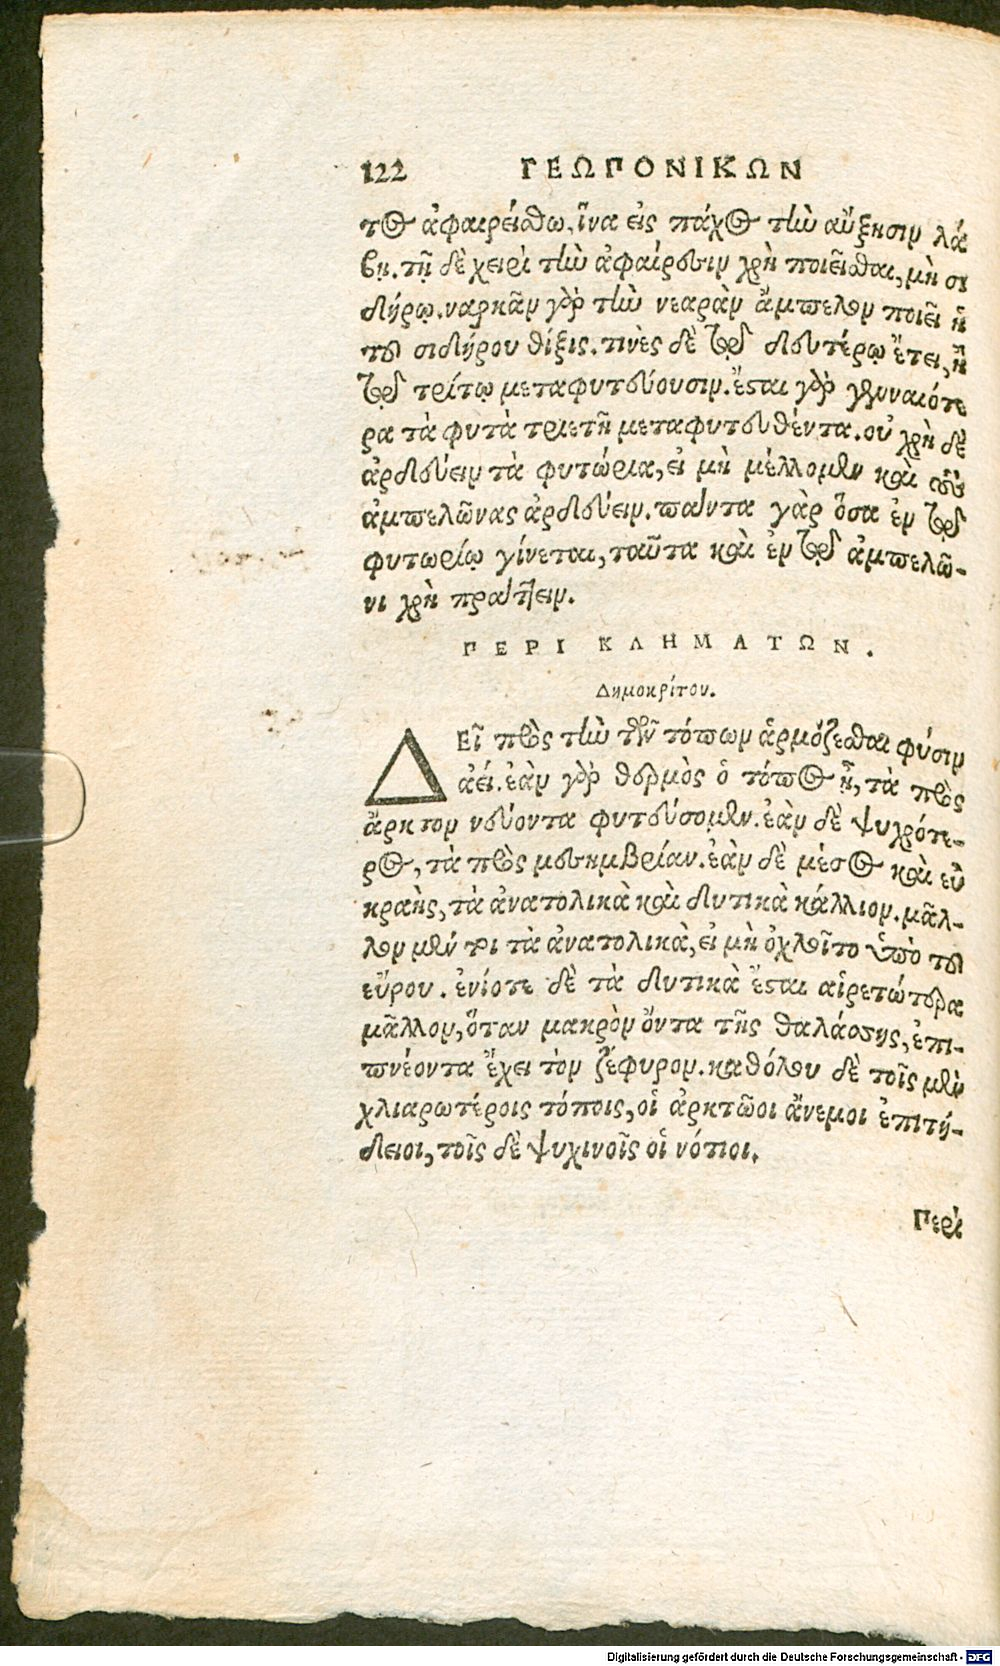 122 ΓΕΩΠΟΝΙΚΩΝ
τος ἀφαιρείσθω, ἵνα εἰς πάχος τὴν αὔξησιν λά
βῃ. τῇ δὲ χειρὶ τὴν ἀφαίρεσιν χρὴ ποιεῖσθαι, μὴ σι
δήρῳ. ναρκᾶν γὰρ τὴν νεαρὰν ἄμπελον ποιεῖ ἡ
τοῦ σιδήρου θίξις. τινὲς δὲ τῷ δευτέρῳ ἔτει, ἢ
τῷ τρίτῳ μεταφυτεύουσιν. ἔσται γὰρ γενναιότε
ρα τὰ φυτὰ τριετῆ μεταφυτευθέντα. οὐ χρὴ δὲ
ἀρδεύειν τὰ φυτώρια, εἰ μὴ μέλλομεν καὶ τοὺς
ἀμπελῶνας ἀρδεύειν. πάντα γὰρ ὅσα ἐν τῷ
φυτωρίῳ γίνεται, ταῦτα καὶ ἐν τῷ ἀμπελῶ-
νι χρὴ πράττειν.
ΠΕΡΙ ΚΛΗΜΑΤΩΝ.
Δημοκρίτου.
ΔΕῖ πρὸς τὴν τῶν τόπων ἁρμόζεσθαι φύσιν
ἀεί. ἐὰν γὰρ θερμὸς ὁ τόπος ᾖ, τὰ πρὸς
ἄρκτον νεύοντα φυτεύσομεν. ἐὰν δὲ ψυχρότε-
ρος, τὰ πρὸς μεσημβρίαν. ἐὰν δὲ μέσος καὶ εὐ
κραὴς, τὰ ἀνατολικὰ καὶ δυτικὰ κάλλιον. μᾶλ-
λον μέν τοι τὰ ἀνατολικὰ, εἰ μὴ ὀχλεῖτο ὑπὸ τοῦ
εὔρου. ἐνίοτε δὲ τὰ δυτικὰ ἔσται αἱρετώτερα
μᾶλλον, ὅταν μακρὸν ὄντα τῆς θαλάσσης, ἐπι-
πνέοντα ἔχει τὸν ζέφυρον. καθόλου δὲ τοῖς μὲν
χλιαρωτέροις τόποις, οἱ ἀρκτῶοι ἄνεμοι ἐπιτή-
δειοι, τοῖς δὲ ψυχινοῖς οἱ νότιοι.
Περὶ
Digitalisierung gefördert durch die Deutsche Forschungsgemeinschaft - DFG